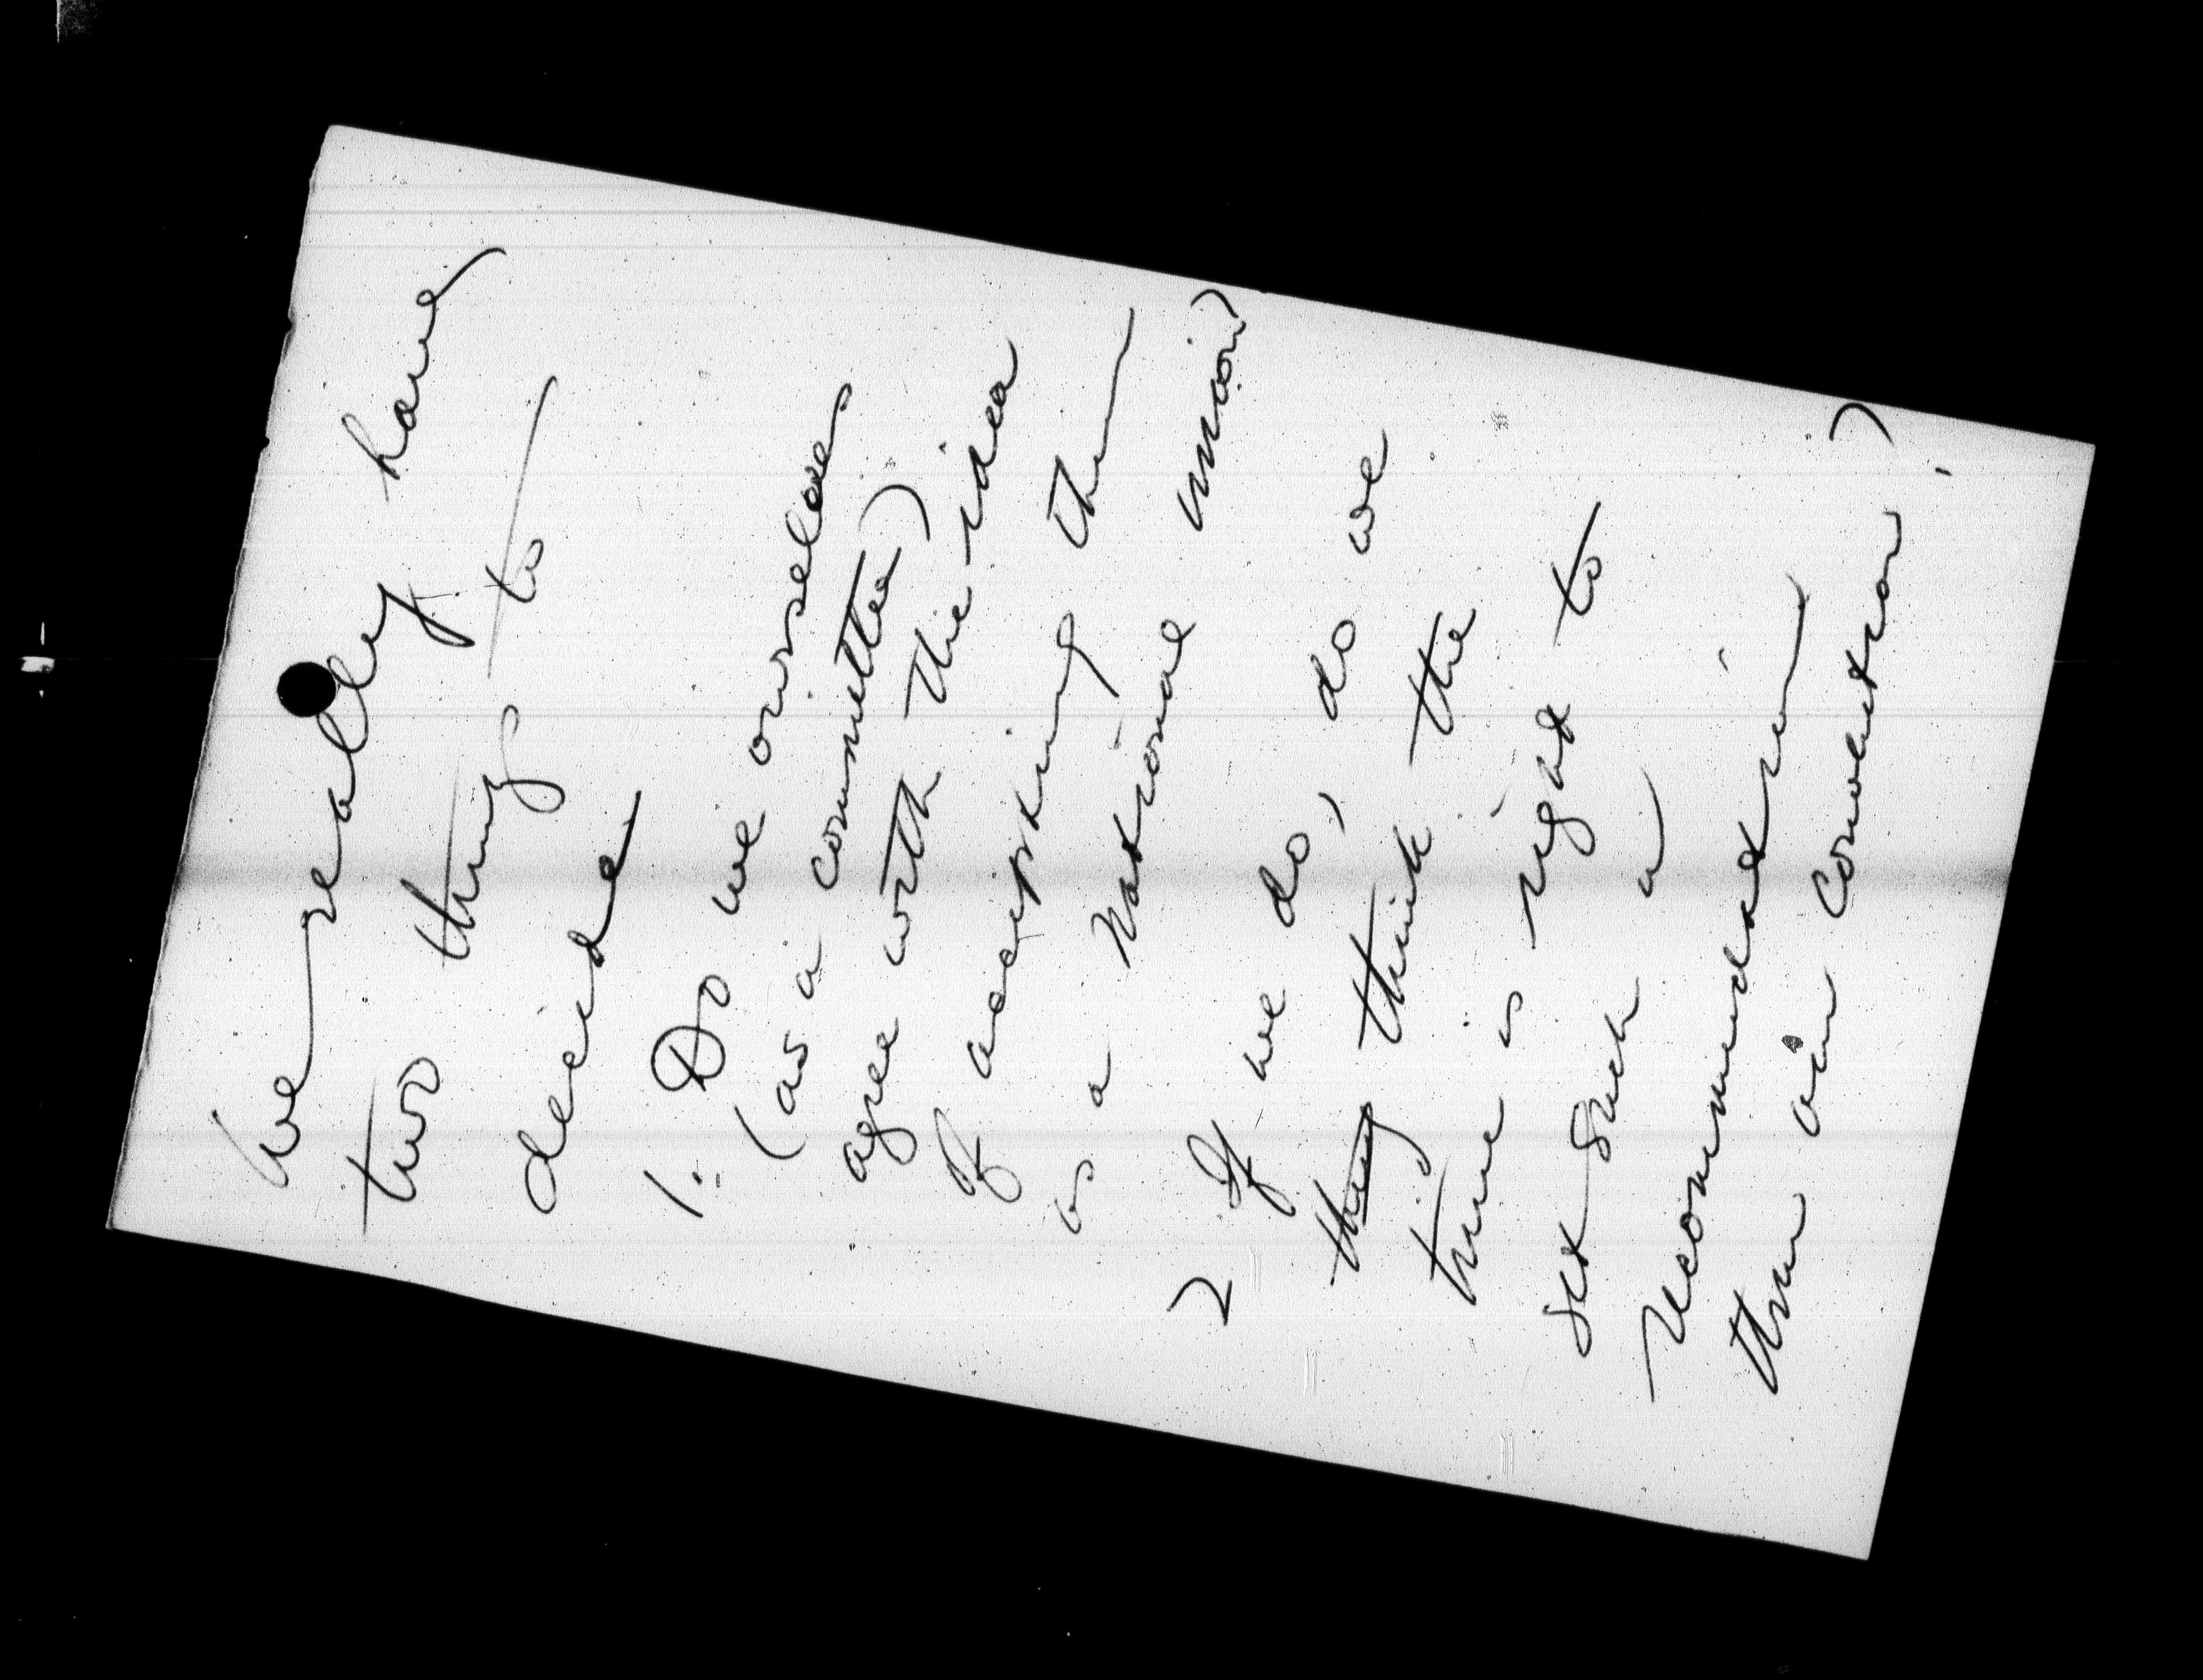 We really have
two things to
decide
1. Do we ourselves
(as a committee)
agree with the idea
of accepting them
as a National union?
2 If we do, do we
think the
time is right to
get such a
recommendation
thru our convention?